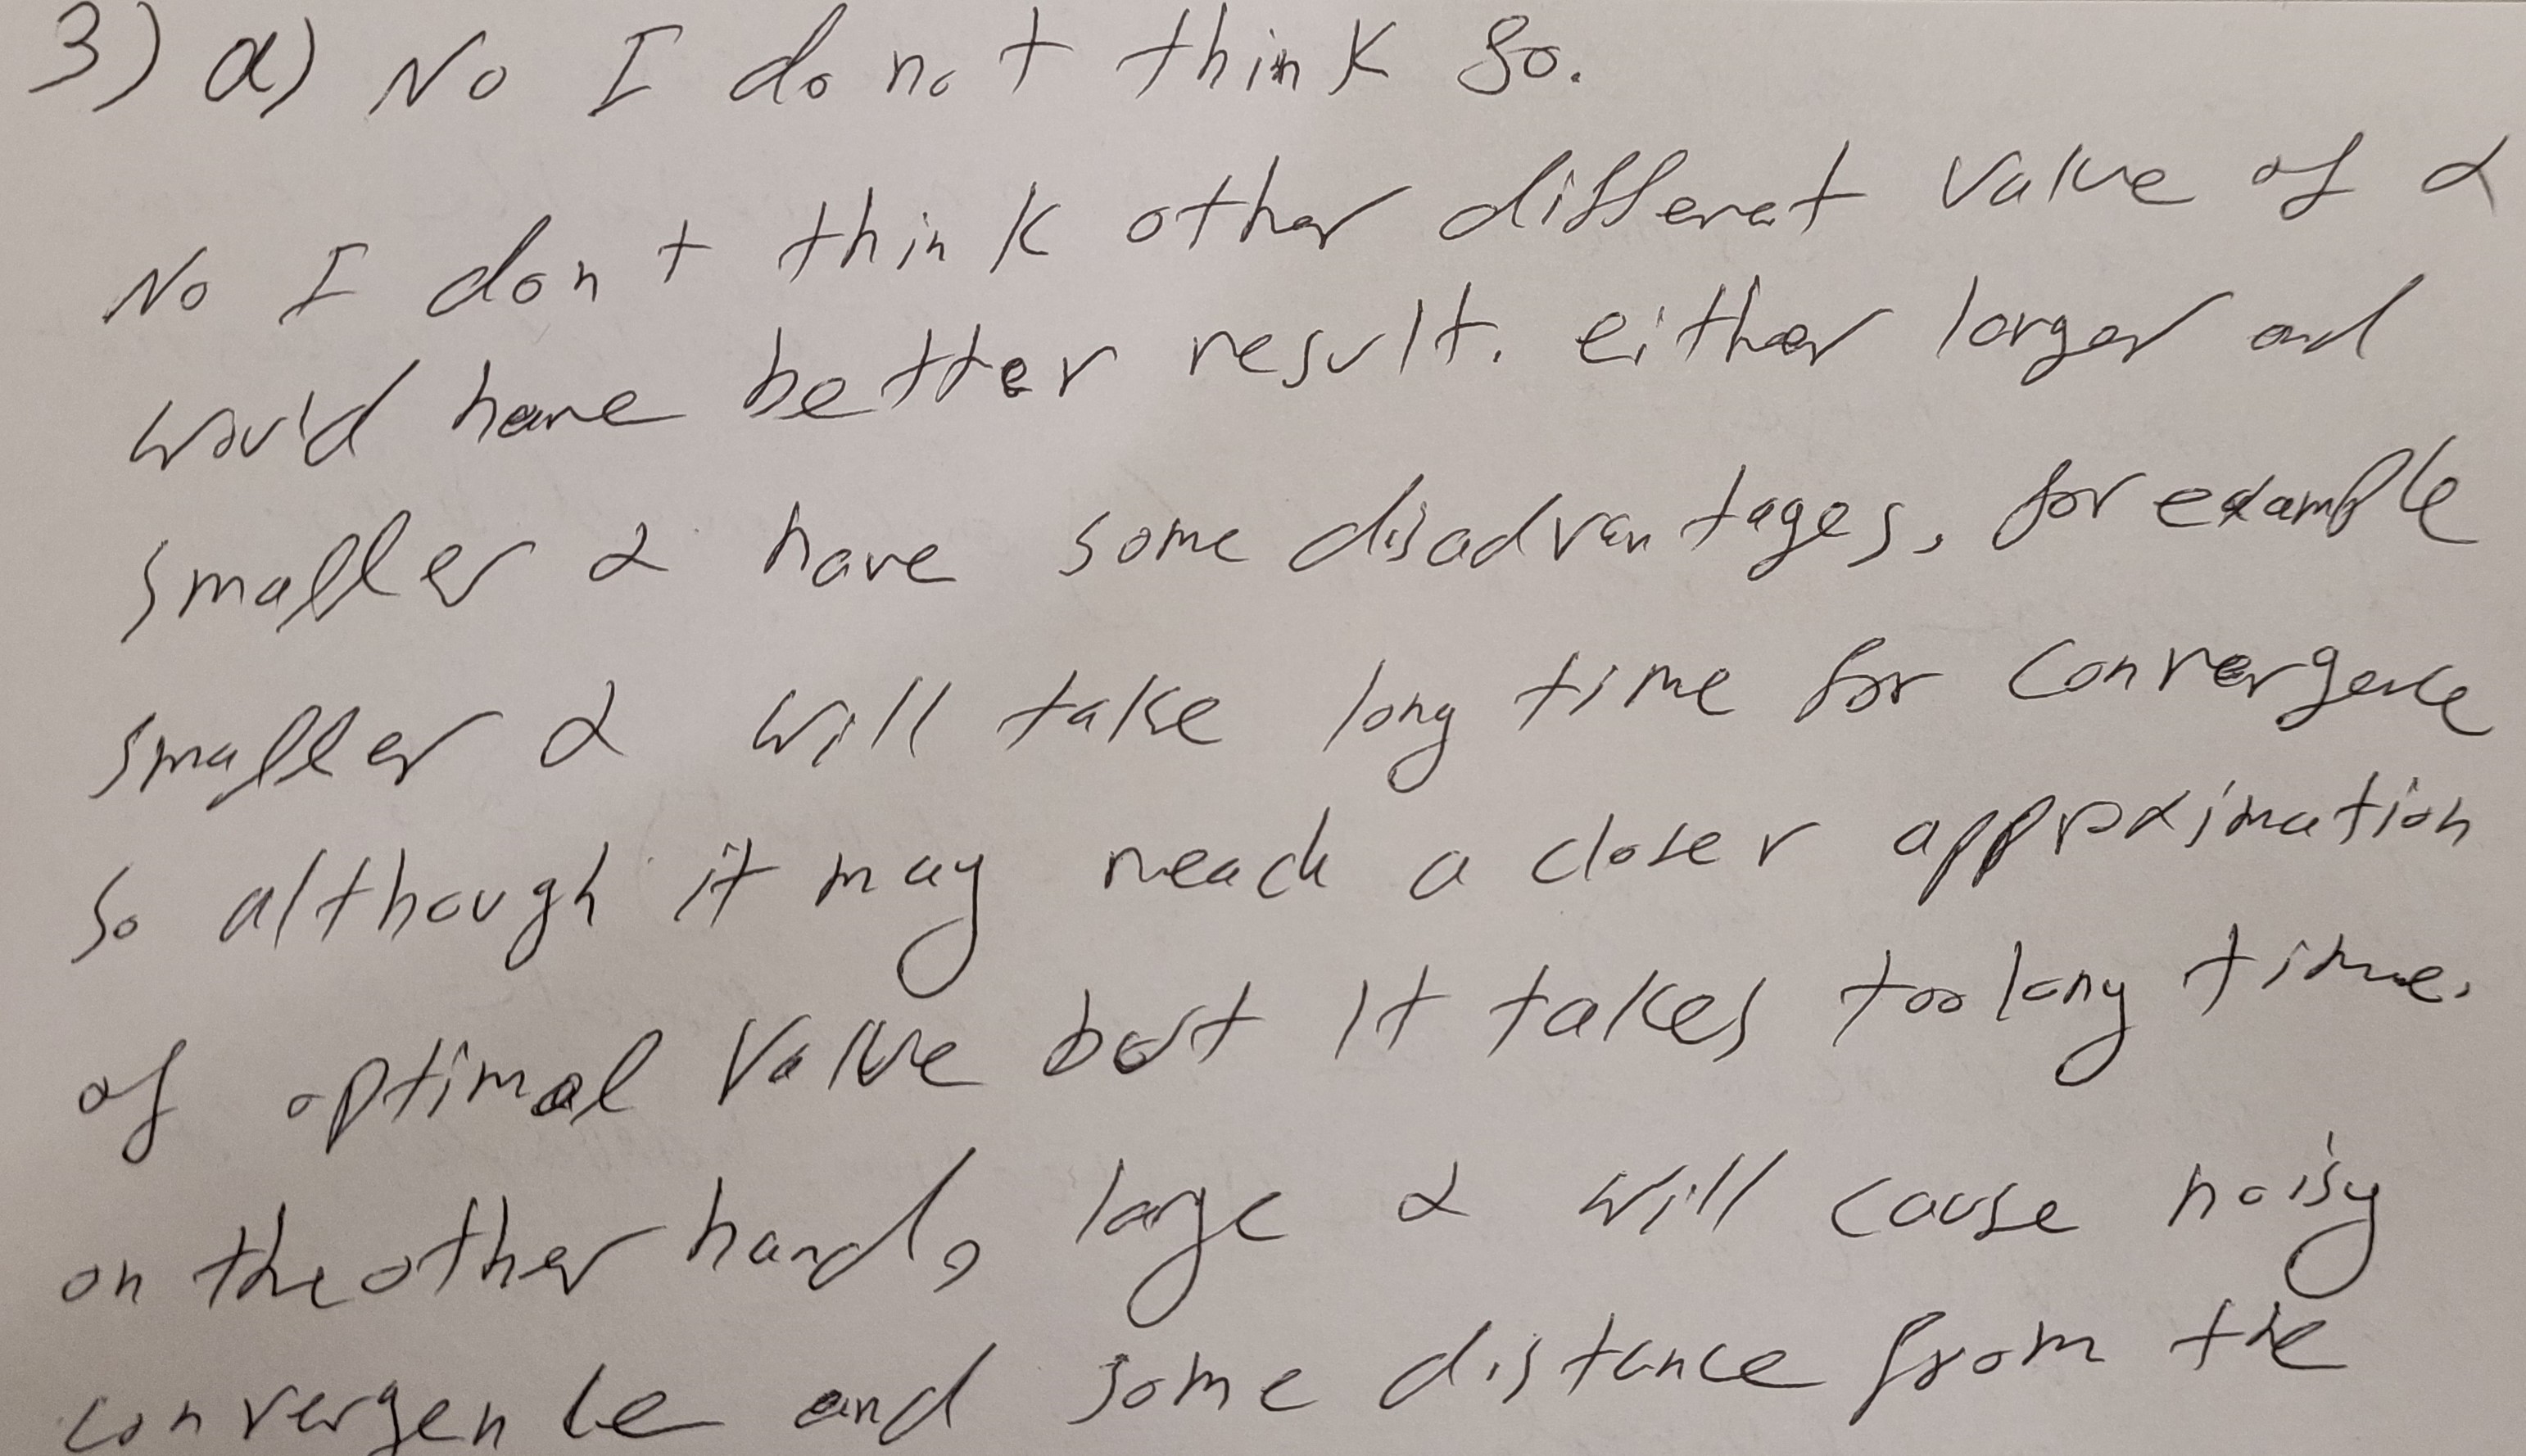 3) a) No I do not think so.
No I don't think other different value of α
would have better result. either larger and
smaller α have some disadvantages, for example
smaller α will take long time for convergence
so although it may reach a closer approximation
of optimal value but it takes too long time.
on the other hand, large α will cause noisy
convergence and some distance from the